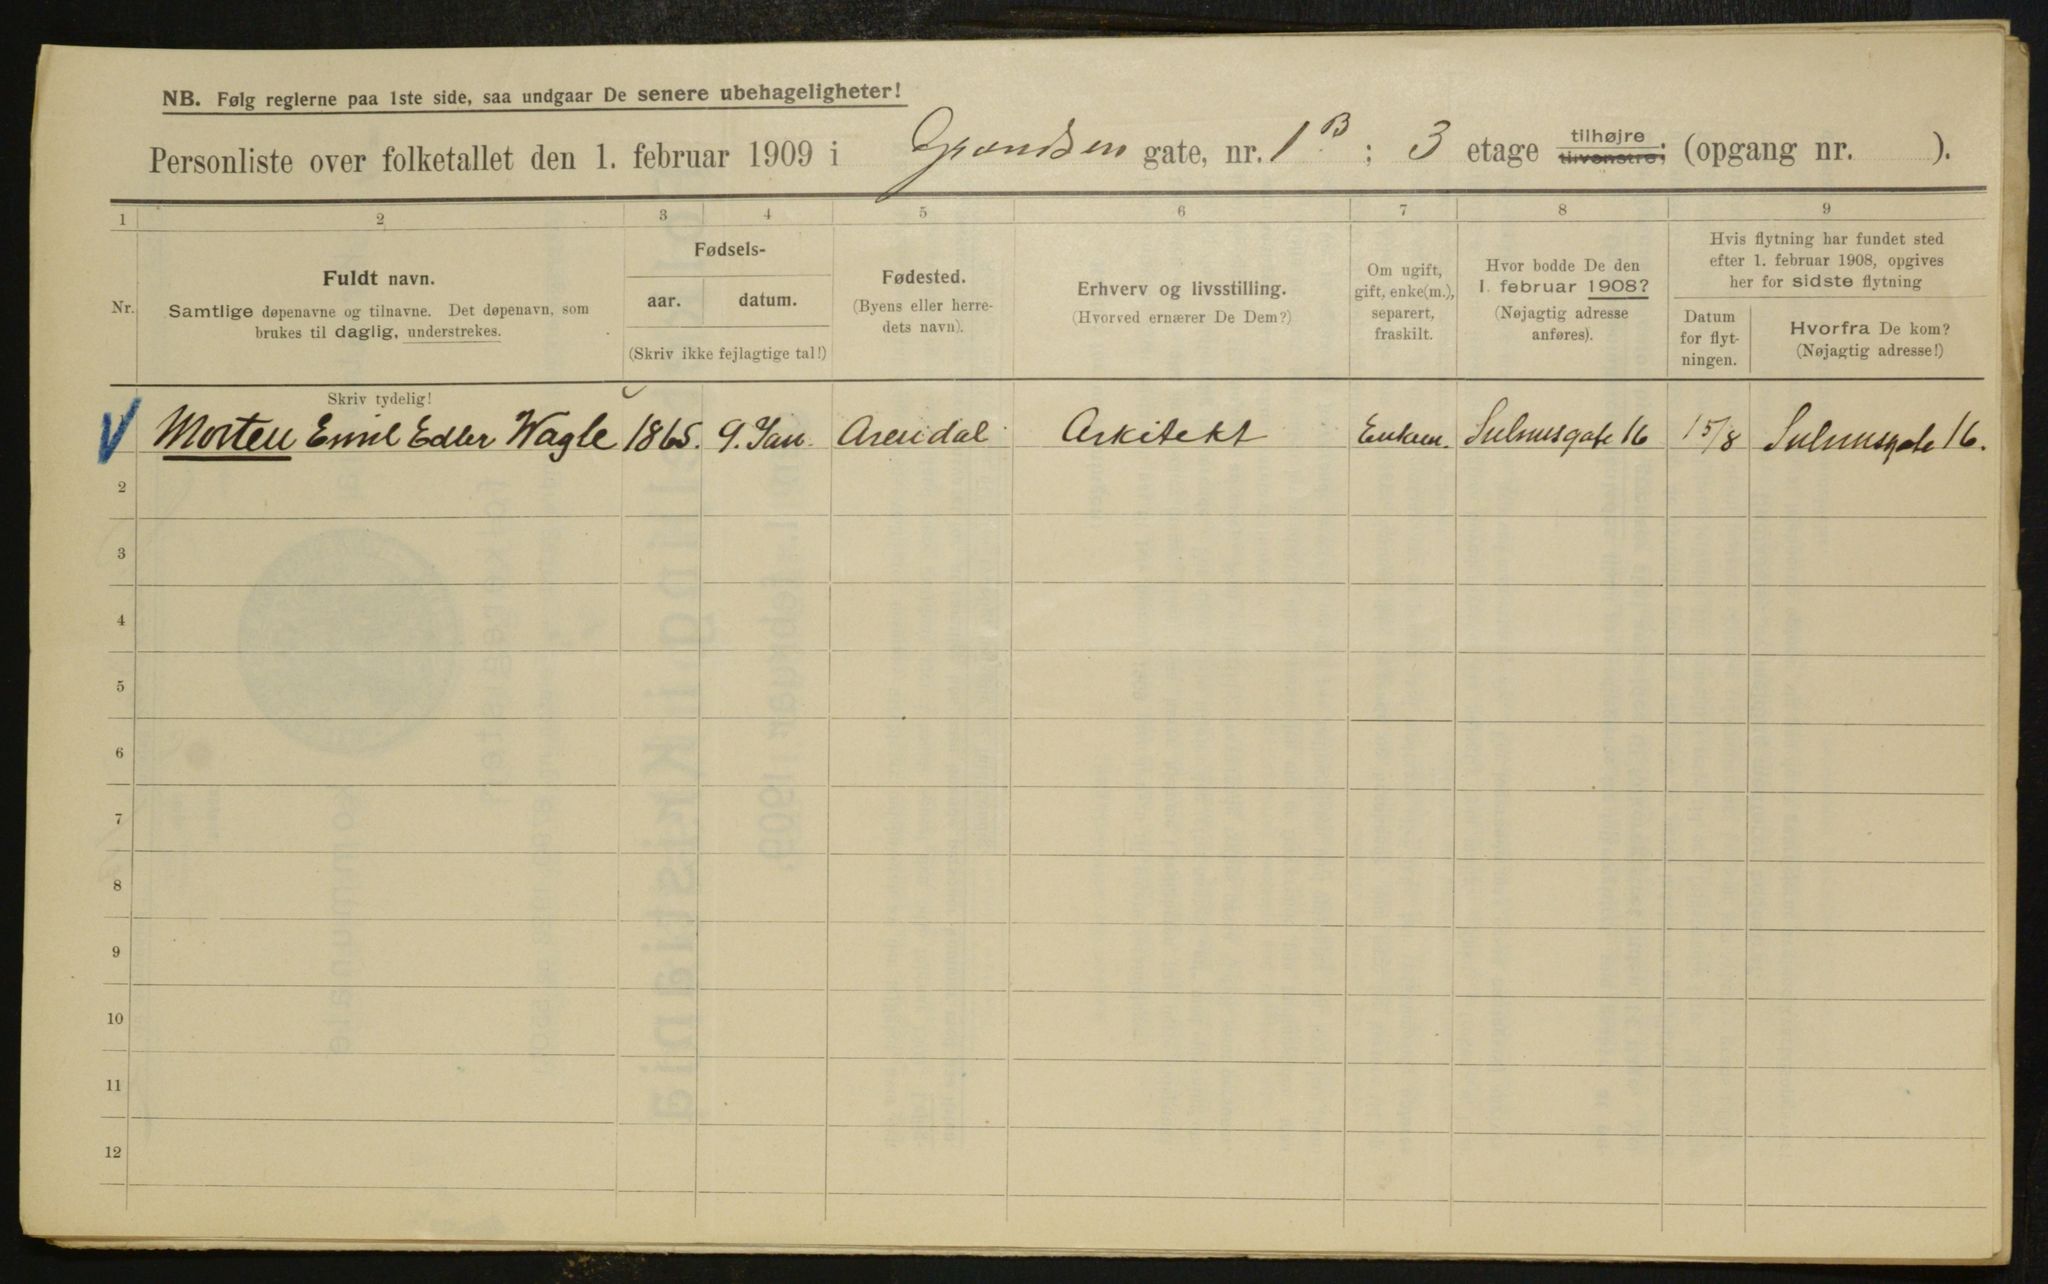 NB. Følg reglerne paa 1ste side, saa undgaar De senere ubehageligheter!
Personliste over folketallet den 1. februar 1909 i Grændsen gate, nr. 1B.; 3 etage tilhøjre tilvenstre; (opgang nr. ).
1 2 3 4 5 6 7 8 9
Nr.
Fuldt navn.
Samtlige døpenavne og tilnavne. Det døpenavn, som
brukes til daglig, understrekes.
Fødsels-
aar. datum.
(Skriv ikke fejlagtige tal!)
Fødested.
(Byens eller herre-
dets navn).
Erhverv og livsstilling.
(Hvorved ernærer De Dem?)
Om ugift,
gift, enke(m.),
separert,
fraskilt.
Hvor bodde De den
1. februar 1908?
(Nøjagtig adresse
anføres).
Hvis flytning har fundet sted
efter 1. februar 1908, opgives
her for sidste flytning
Datum
for flyt-
ningen.
Hvorfra De kom?
(Nøjagtig adresse!)
Skriv tydelig!
Morten Emil Edler Wagle 1865. 9. Jan. Arendal Arkitekt Enkem. 16 15/8 16.
2
3
4
5
6
7
8
9
10
11
12